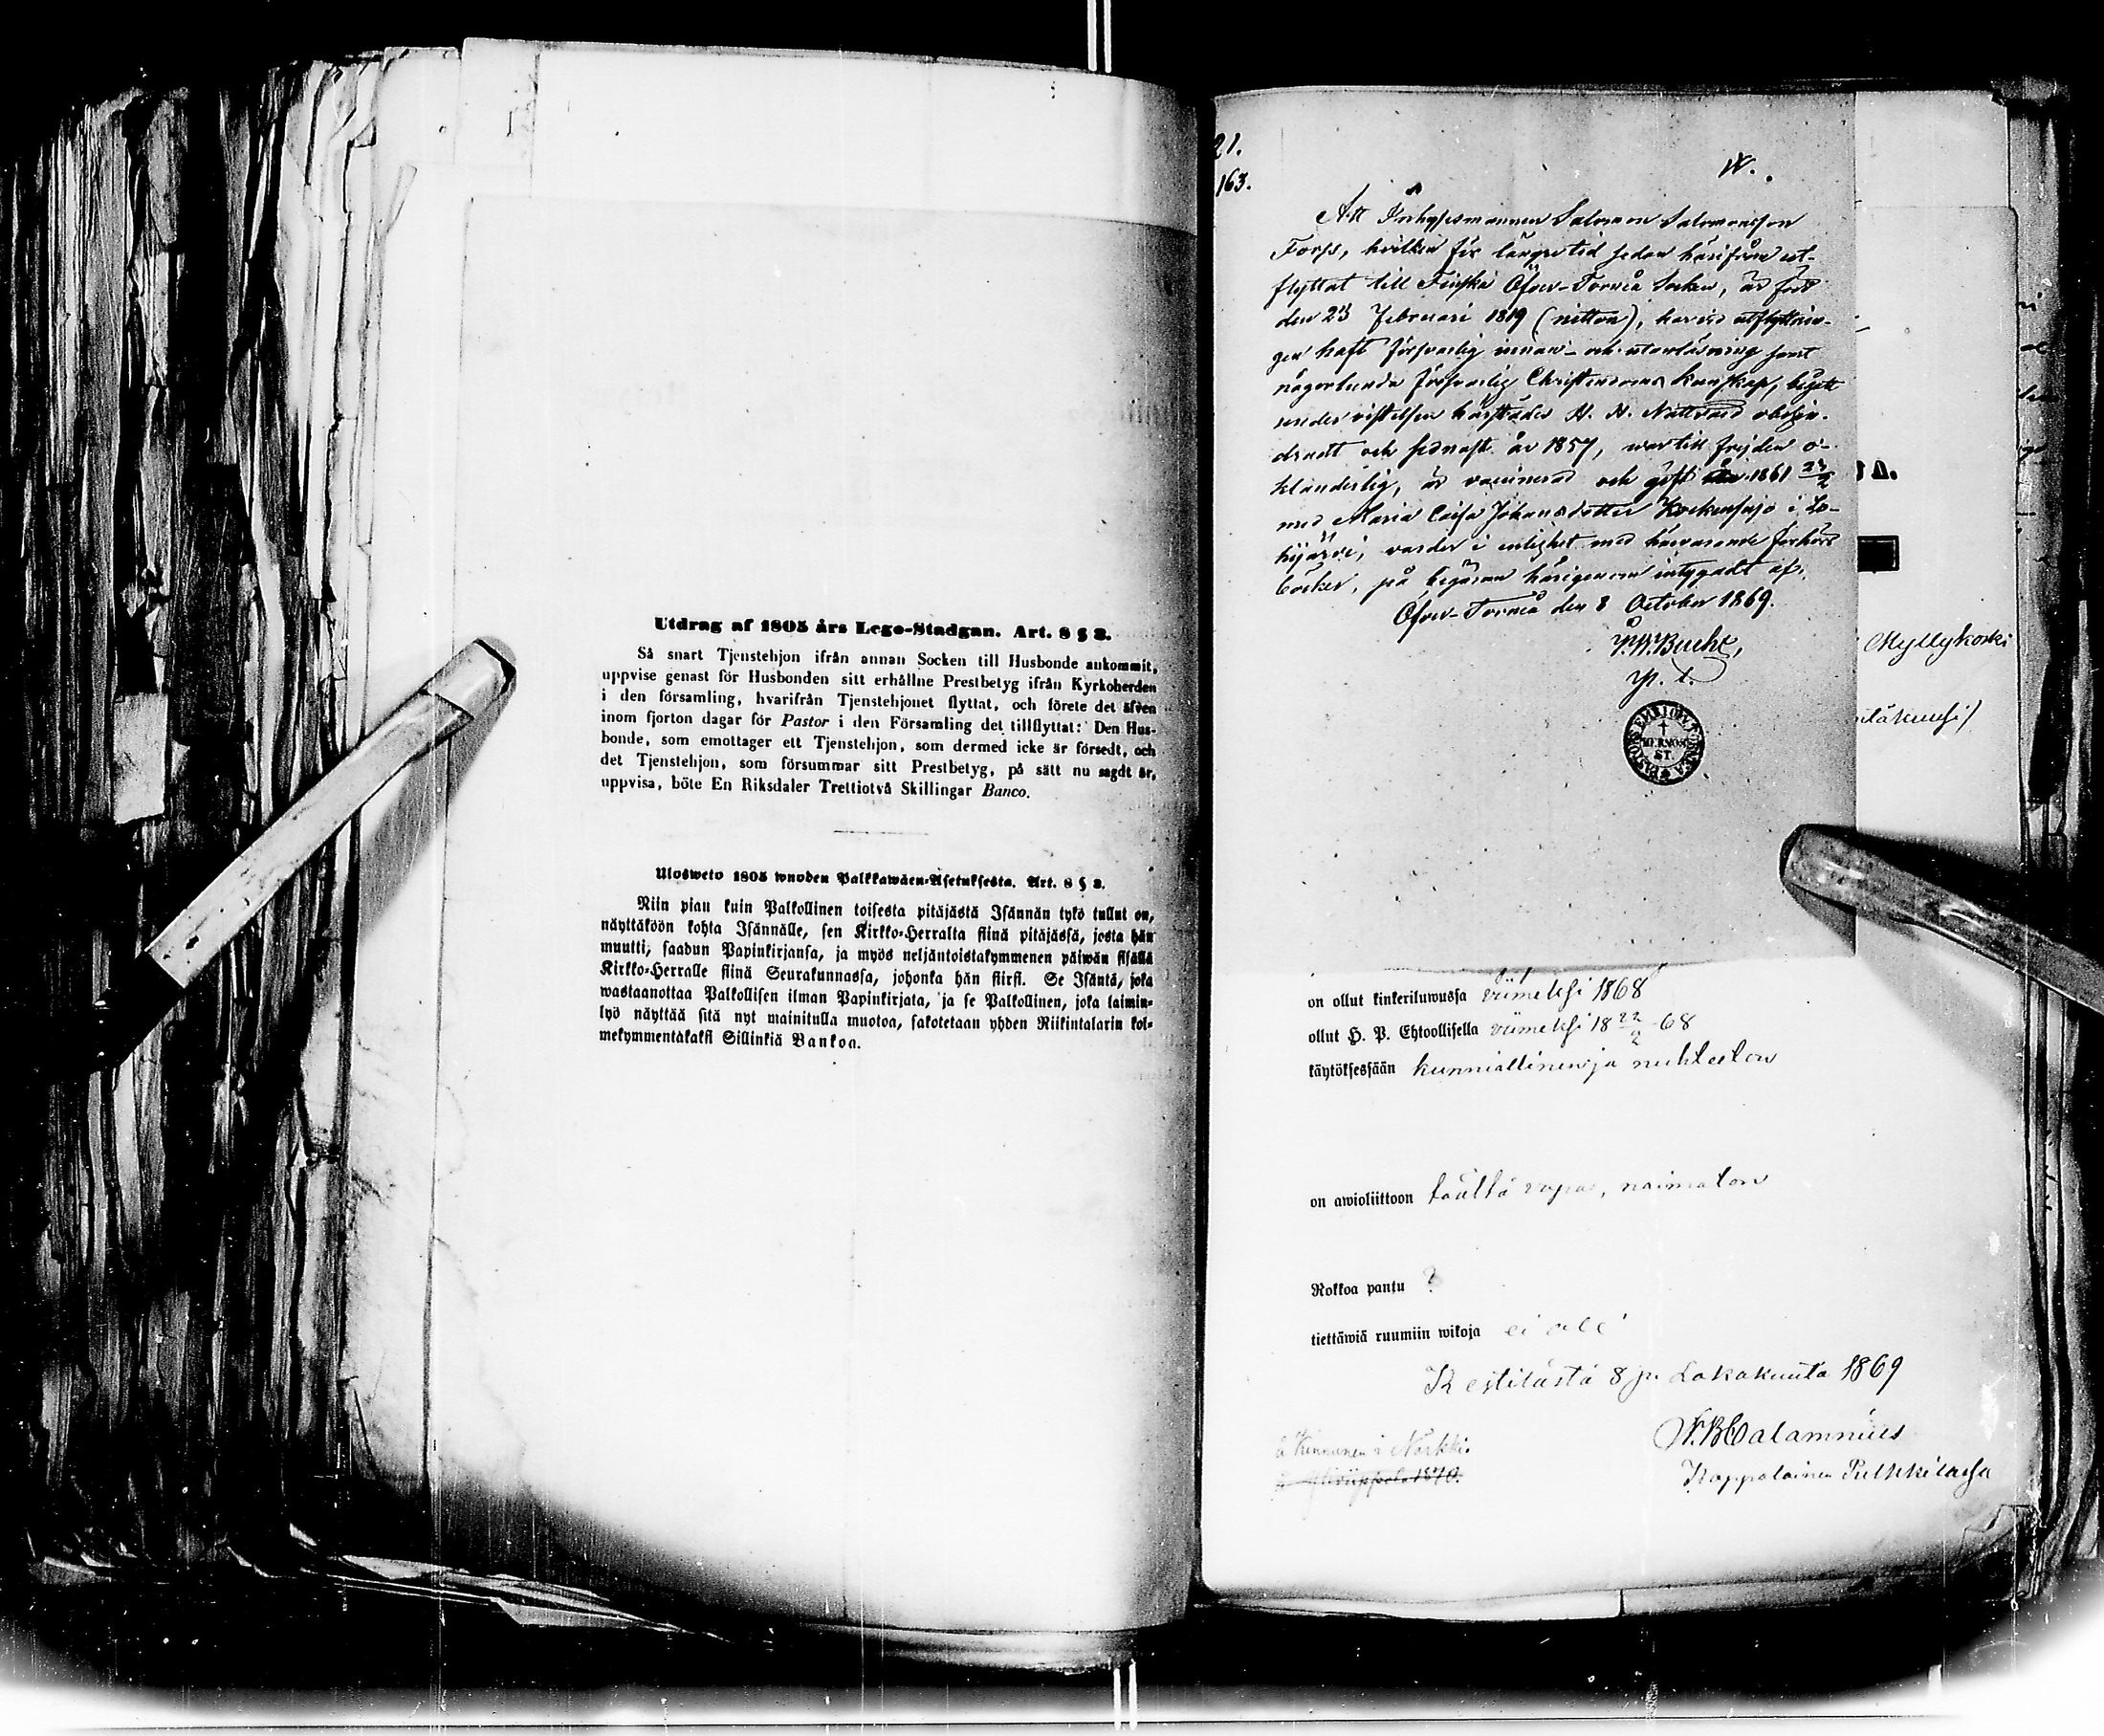 Utdrag af 1805 års Lego-Stadgan. Art. 8 § 3.
Så snart Tjenstehjon ifrån annan Socken till Husbonde ankommit,
uppvise genast för Husbonden sitt erhållne Prestbetyg ifrån Kyrkoherden
i den församling, hvarifrån Tjenstehjonet flyttat, och förete det äfven
inom fjorton dagar för Pastor i den Församling det tillflyttat: Den Hus-
bonde, som emottager ett Tjenstehjon, som dermed icke är försedt, och
det Tjenstehjon, som försummar sitt Prestbetyg, på sätt nu sagdt är,
uppvisa, böte En Riksdaler Trettiotvå Skillingar Banco.
Ulosweto 1805 wuoden Palkkawäen-Asetuksesta. Art. 8 § 3.
Niin pian kuin Palkollinen toisesta pitäjästä Isännän tykö tullut on,
näyttäköön kohta Isännälle, sen Kirkko-Herralta siinä pitäjässä, josta hän
muutti, saadun Papinkirjansa, ja myös neljäntoistakymmenen päiwän sisällä
Kirkko-Herralle siinä Seurakunnassa, johonka hän siirsi. Se Isäntä, joka
wastaanottaa Palkollisen ilman Papinkirjata, ja se Palkollinen, joka laimin-
lyö näyttää sitä nyt mainitulla muotoa, sakotetaan yhden Riikintalarin kol-
mekymmentäkaksi Sillinkiä Bankoa.
21.
163.
Att Inhysesmannen Salomon Salomonsson
Forss, hvilken för längre tid sedan härifrån ut-
flyttat till Finska Öfver-Torneå Socken, är född
den 23 Februari 1819 (nitton), har vid utflyttnin-
gen haft försvarlig innan- och utanläsning samt
någorlunda försvarlig Christendoms kunskap, begått
under vistelsen härstädes H. H. Nattvard obehin-
dradt och sednast år 1857, war till frejden o-
klanderlig, är vaccinerad och gift 1861 24/2
med Maria Caisa Johansdotter i Lo-
hijärvi, varder i enlighet med härvarande förhörs
böcker, på begäran härigenom intygadt af.
Öfver-Torneå den 8 October 1869.
P. t.
on ollut kinkeriluwussa viimeksi 1868
ollut H. P. Ehtoollisella viimeksi 18 22/2 68
käytöksessään kunniallinen ja nuhteeton
on awioliittoon täältä vapaa, naimaton
Rokkoa pantu ?
tiettäwiä ruumiin wikoja ei ole
Kestilästä 8 p. Lokakuuta 1869
F. B. Calamnius
Kappalainen Pulkkilassa
Myllykoski